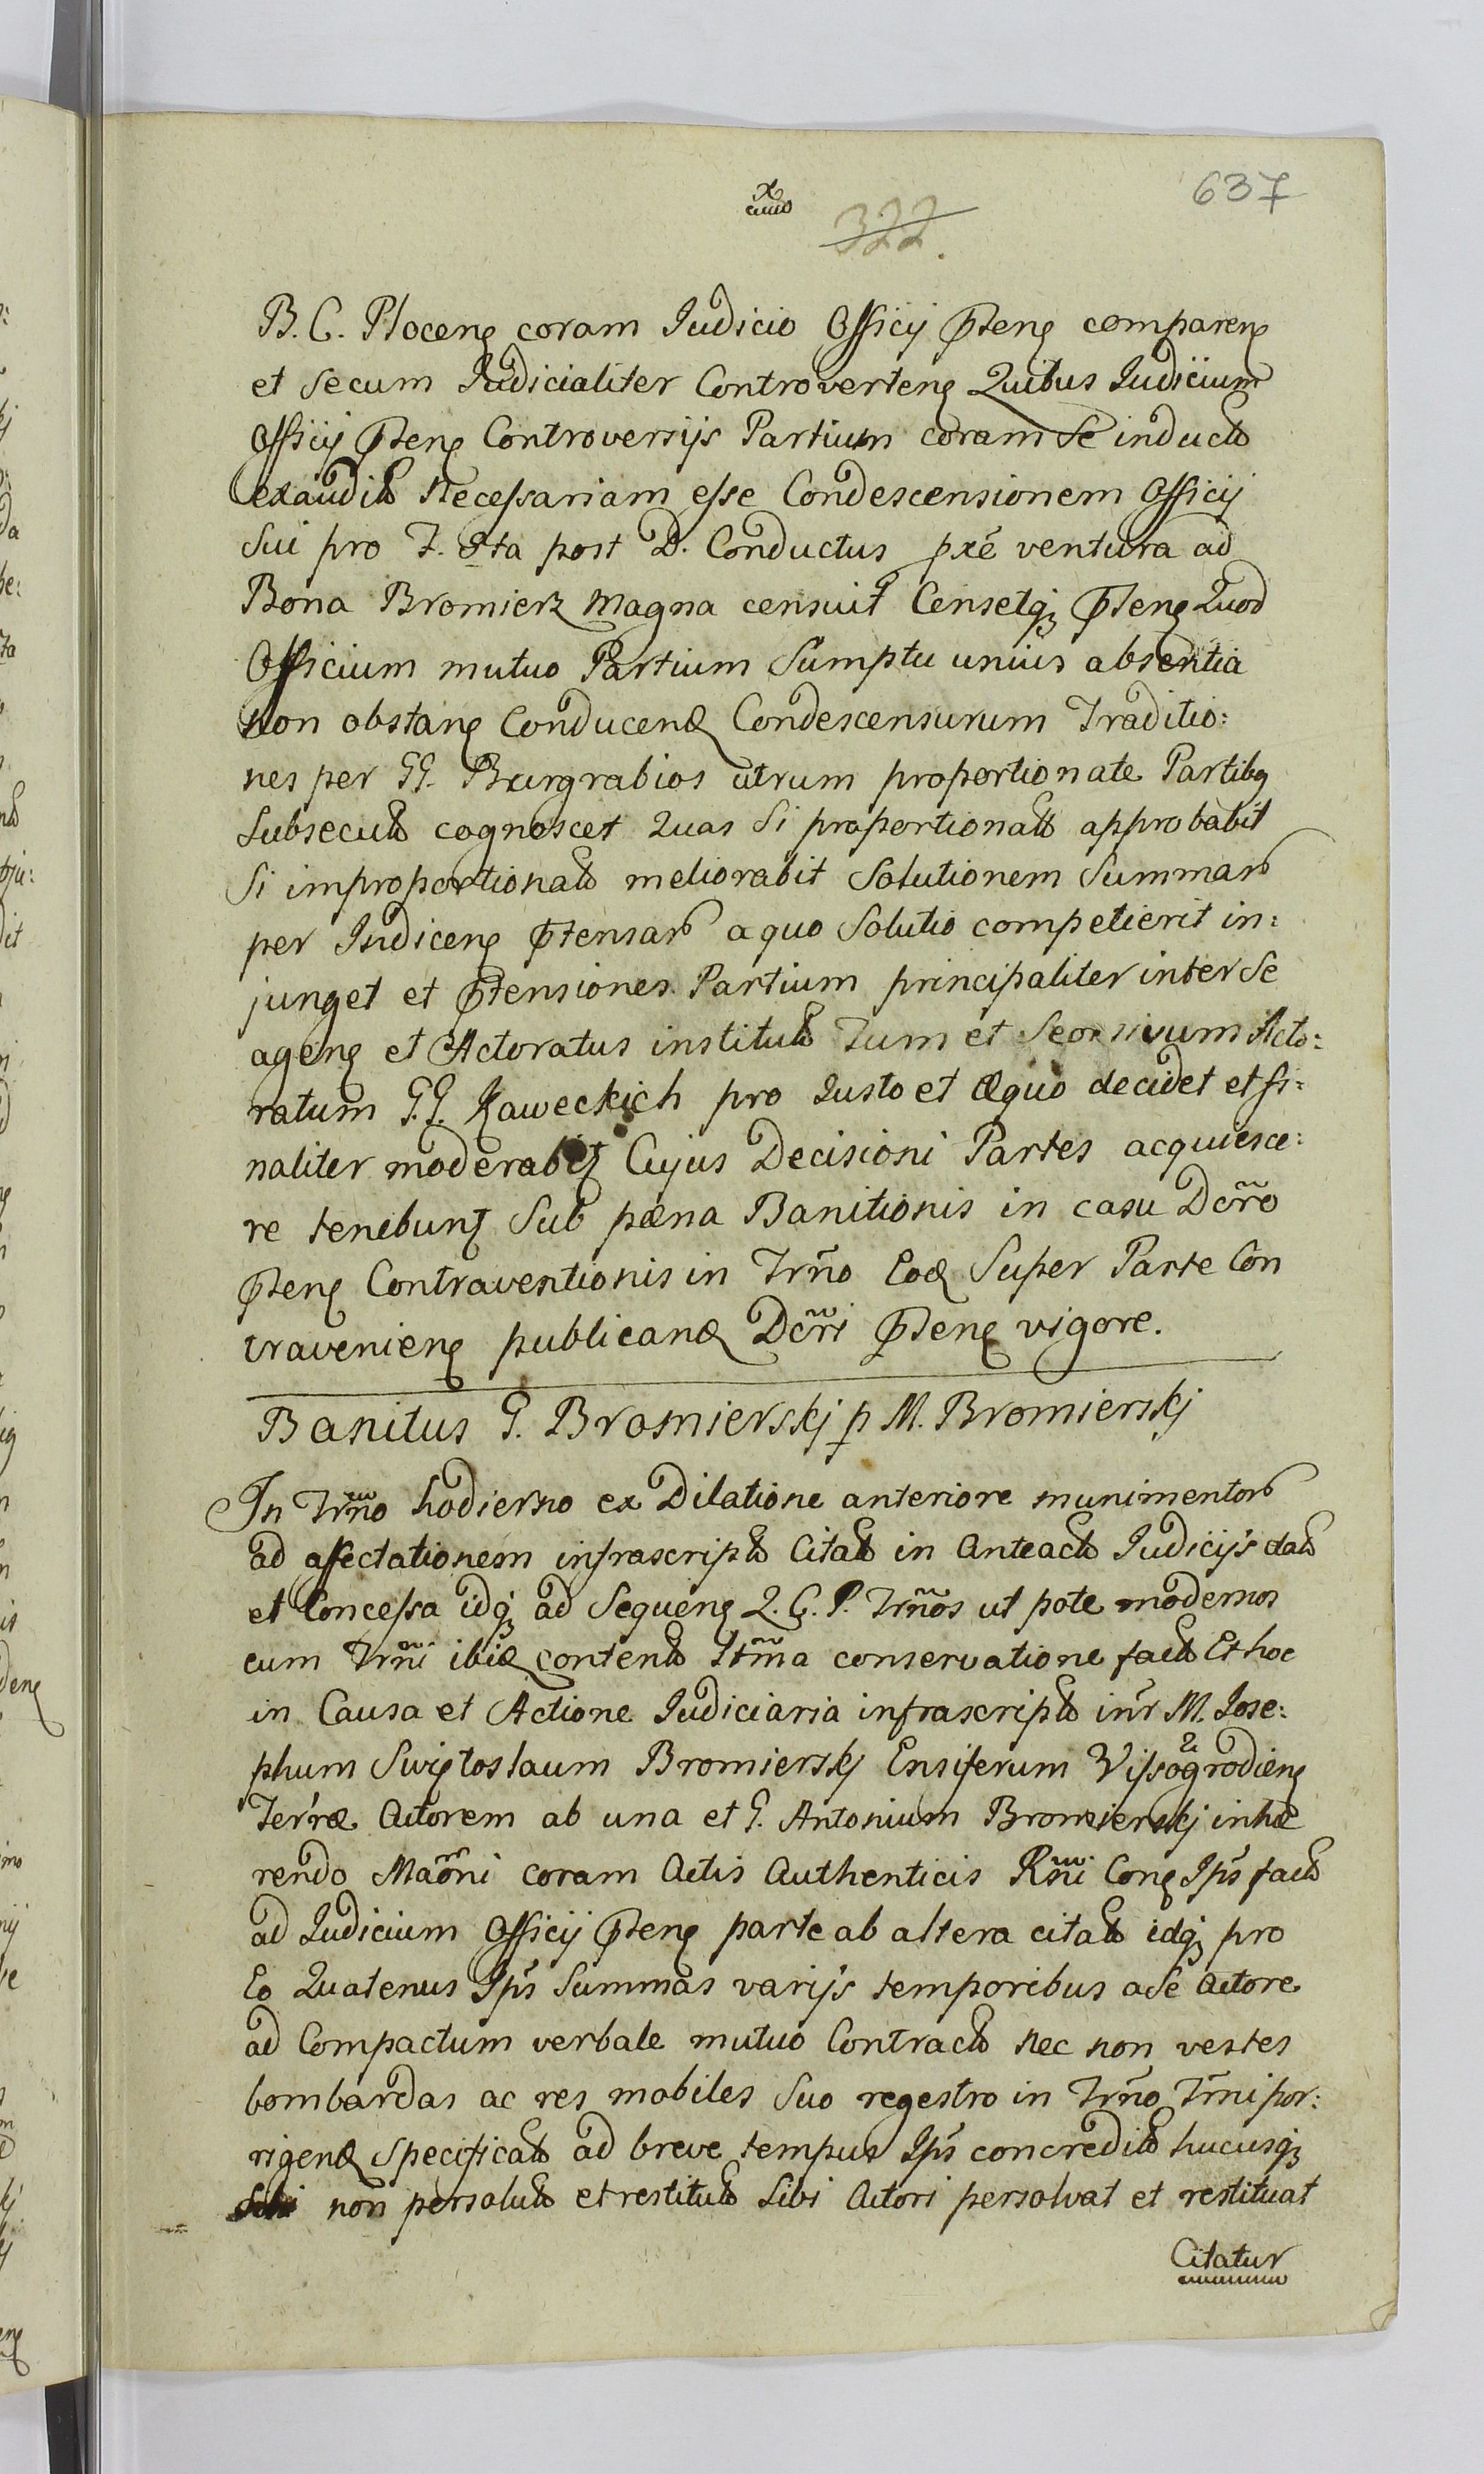 x
322.
637
B. C. Ploceng coram Iudicio Officij Pteng compareng
et Secum Iudicialiter Controverteng Quibus Iudicium
Officij Pteng Controversijs Partium coram Se induct
exaudit Necessariam esse Condescensionem Officij
Sui pro F. Sta post D. Conductus pxe ventura ad
Bona Bromierz Magna censuit Censetq Pteng Quod
Officium mutuo Partium Sumptu unius absentia
non obstang Conducend Condescensurum Traditio:
nes per GG. Burgrabios utrum proportionate Partibg
Subsecut cognoscet Quas Si proportionat approbabit
Si improportionat meliorabit Solutionem Summar
per Indiceng Ptensar a quo Solutio competierit in:
junget et Ptensiones Partium principaliter inter Se
ageng et Actoratus institut Tum et Seorsivum Acto:
ratum G.G. Kaweckich pro Iusto et Æquo decidet et fi:
naliter moderabit Cujus Decisioni Partes acquiesce:
re tenebunt Sub pæna Banitionis in casu Dcr̃o
Pteng Contraventionis in Trño Eod Super Parte Con
travenieng publicand Dcr̃i Pteng vigore.
Banitus G. Bromierskj p M. Bromierskj
In Trño hodierno ex Dilatione anteriore munimentor
ad affectationem infrascript Citat in Anteact Iudicijs dat
et Concessa idq ad Sequeng Q. C. P. Trños ut pote modernos
cum Trñi ibid content Itm̃a conservatione fact Et hoc
in Causa et Actione Iudiciaria infrascript inr̃ M. Iose:
phum Swiętoslaum Bromierskj Ensiferum Vissogrodieng
Terræ Actorem ab una et G. Antonium Bromierskj inhæ
rendo Maõni coram Actis Authenticis Rñi Cong Ips fact
ad Iudicium Officij Pteng parte ab altera citat idq pro
Eo Quatenus Ips Summas varijs temporibus a Se Actore
ad Compactum verbale mutuo Contract nec non vestes
bombardas ac res mobiles Suo regestro in Trño Trñi por:
rigend Specificat ad breve tempus Ips concredit hucusq
non persolut et restitut Sibi Actori persolvat et restituat
Citatur